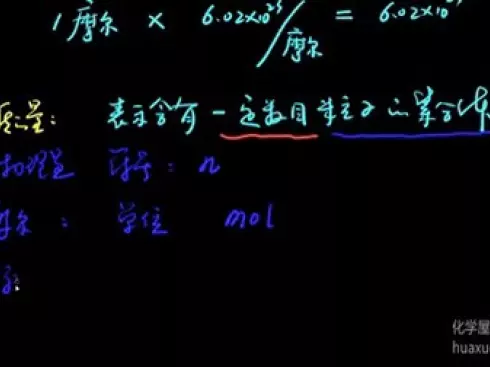 1摩尔 × 6.02×10²³/摩尔 = 6.02×10
质量: 表示含有一定数目粒子的集合体
物理量 符号: n
摩尔: 单位 mol
化学屋
huaxu